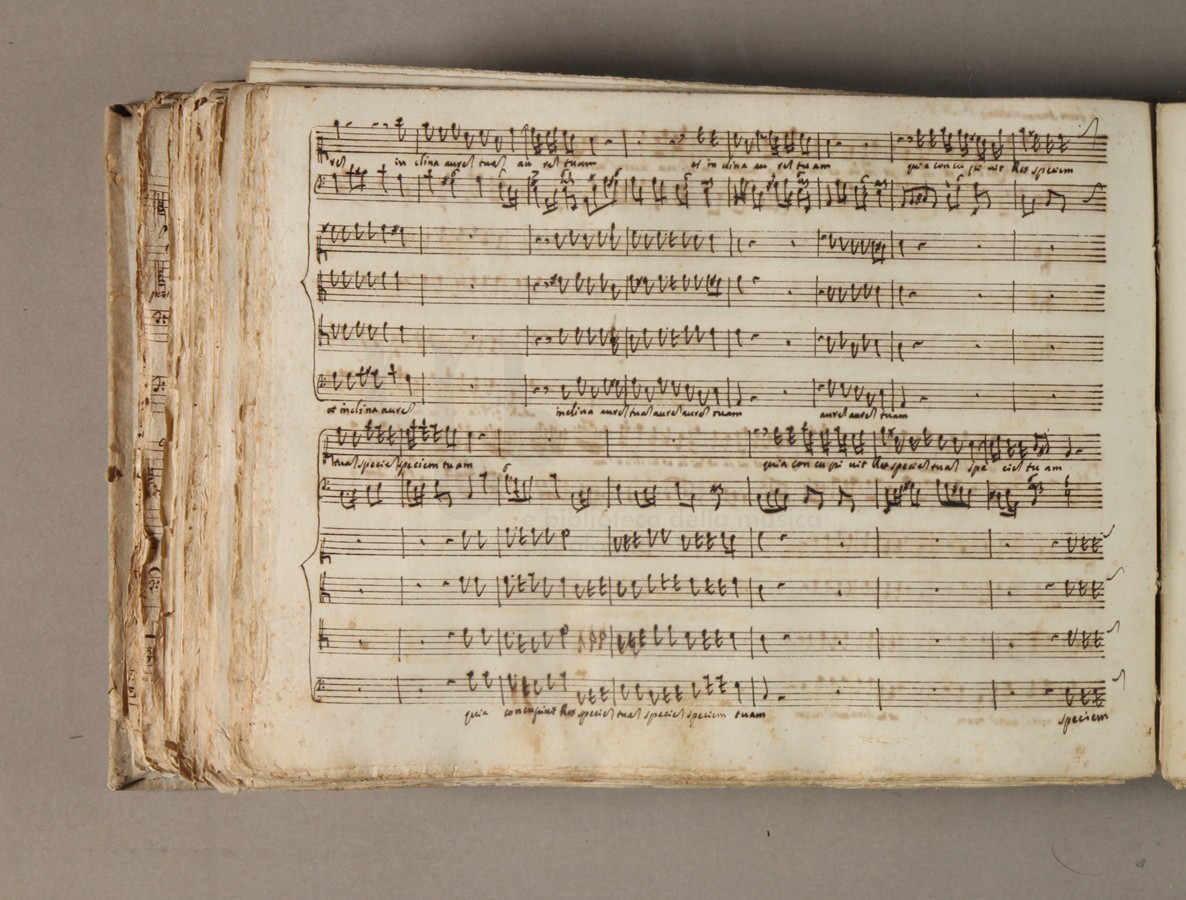 rem in clina aurem tuam au rem tuam et in clina au rem tuam quia con cu pi uit Rex speciem
et inclina aurem inclina aurem tuam aurem aurem tuam aurem aurem tuam
tuam speciem speciem tuam quia con cu pi uit Rex speciem tuam spe ciem tu am
quia concupiuit Rex speciem tuam speciem speciem tuam speciem
biblioteca della musica